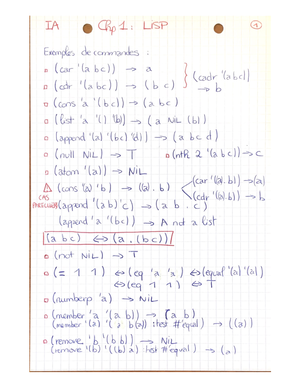 IA Chp 1 : LISP 1
Exemples de commandes :
(car '(a b c)) → a
(cdr '(a b c)) → (b c) } (cadr '(a b c)) → b
(cons 'a '(b c)) → (a b c)
(list 'a '() '(b)) → (a NIL (b))
(append '(a) '(bc) '(d)) → (a b c d)
(null NIL) → T (nth 2 '(a b c)) → c
(atom '(a)) → NIL
(cons '(a) 'b) → ((a) . b) (car '((a) . b)) → (a)
CAS (cdr '((a) . b)) → b
(append '(a b) 'c) → (a b . c)
(append 'a '(bc)) → A not a list
(a b c) ⇔ (a . (b c))
(not NIL) → T
(= 1 1) ⇔ (eq 'a 'a) ⇔ (equal '(a) '(a))
⇔ (eq 1 1) ⇔ T
(numberp 'a) → NIL
(member 'a '(a b)) → (a b)
(member '(a) '( b (a)) :test #'equal) → ((a))
(remove 'b '(b b)) → NIL
(remove '(b) '((b) a) :test #'equal) → (a)